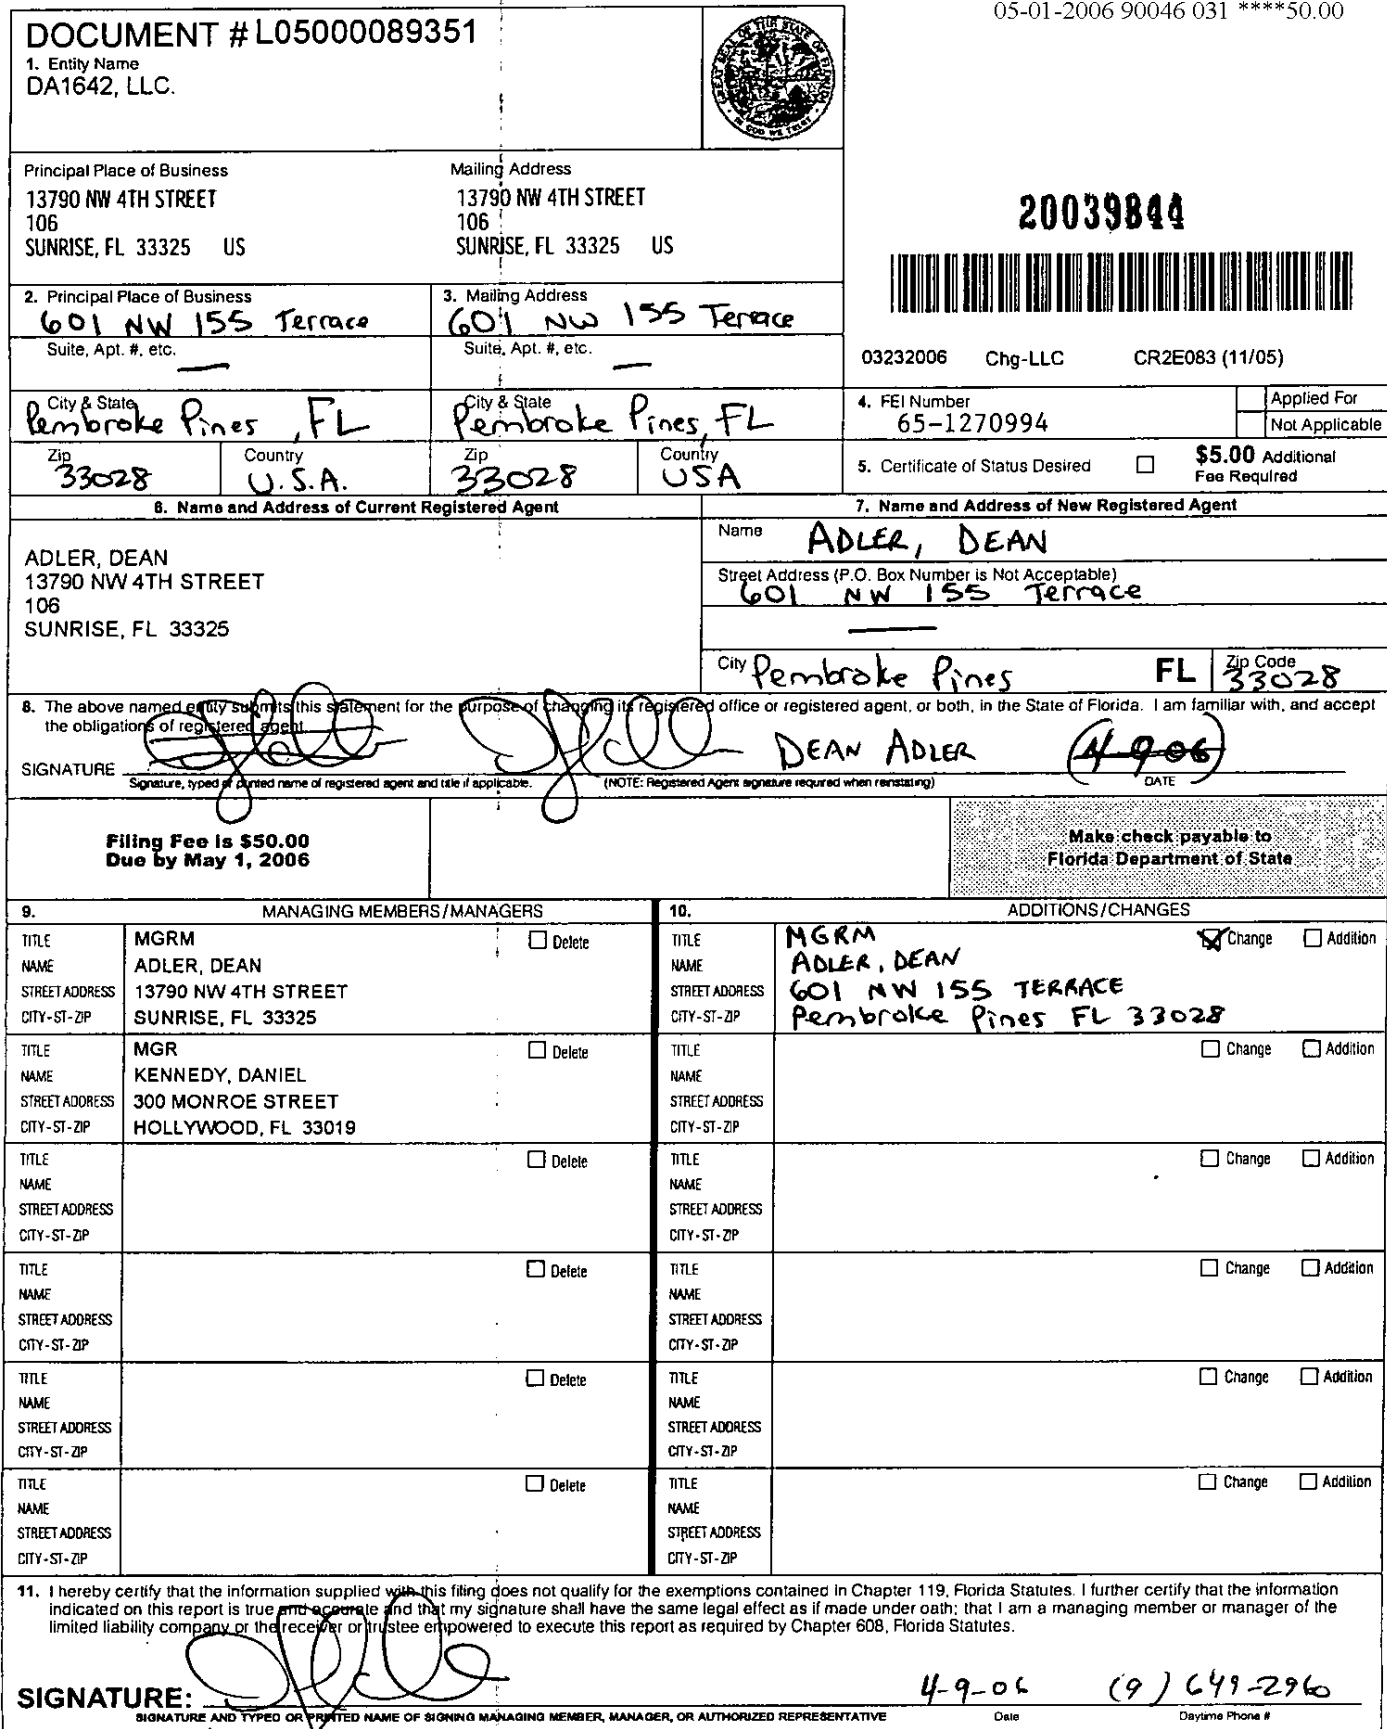 05-01-2006 90046 031 ****50.00
DOCUMENT # L05000089351
1. Entity Name
DA1642, LLC.
GREAT SEAL OF THE STATE OF FLORIDA
IN GOD WE TRUST
Principal Place of Business
13790 NW 4TH STREET
106
SUNRISE, FL 33325 US
Mailing Address
13790 NW 4TH STREET
106
SUNRISE, FL 33325 US
20039844
2. Principal Place of Business
601 NW 155 Terrace
3. Mailing Address
601 NW 155 Terrace
Suite, Apt. #, etc.
—
Suite, Apt. #, etc.
—
03232006 Chg-LLC CR2E083 (11/05)
City & State
Pembroke Pines, FL
City & State
Pembroke Pines, FL
4. FEI Number
65-1270994
Applied For
Not Applicable
Zip
33028
Country
U.S.A.
Zip
33028
Country
USA
5. Certificate of Status Desired
$5.00 Additional
Fee Required
6. Name and Address of Current Registered Agent
ADLER, DEAN
13790 NW 4TH STREET
106
SUNRISE, FL 33325
7. Name and Address of New Registered Agent
Name ADLER, DEAN
Street Address (P.O. Box Number is Not Acceptable)
601 NW 155 Terrace
—
City Pembroke Pines FL Zip Code 33028
8. The above named entity submits this statement for the purpose of changing its registered office or registered agent, or both, in the State of Florida. I am familiar with, and accept
the obligations of registered agent.
SIGNATURE DEAN ADLER 4-9-06
Signature, typed or printed name of registered agent and title if applicable. (NOTE: Registered Agent signature required when reinstating) DATE
Filing Fee is $50.00
Due by May 1, 2006
Make check payable to
Florida Department of State
9. MANAGING MEMBERS/MANAGERS
10. ADDITIONS/CHANGES
TITLE MGRM Delete
NAME ADLER, DEAN
STREET ADDRESS 13790 NW 4TH STREET
CITY-ST-ZIP SUNRISE, FL 33325
TITLE MGRM Change Addition
NAME ADLER, DEAN
STREET ADDRESS 601 NW 155 TERRACE
CITY-ST-ZIP Pembroke Pines FL 33028
TITLE MGR Delete
NAME KENNEDY, DANIEL
STREET ADDRESS 300 MONROE STREET
CITY-ST-ZIP HOLLYWOOD, FL 33019
TITLE Change Addition
NAME
STREET ADDRESS
CITY-ST-ZIP
TITLE Delete
NAME
STREET ADDRESS
CITY-ST-ZIP
TITLE Change Addition
NAME
STREET ADDRESS
CITY-ST-ZIP
TITLE Delete
NAME
STREET ADDRESS
CITY-ST-ZIP
TITLE Change Addition
NAME
STREET ADDRESS
CITY-ST-ZIP
TITLE Delete
NAME
STREET ADDRESS
CITY-ST-ZIP
TITLE Change Addition
NAME
STREET ADDRESS
CITY-ST-ZIP
TITLE Delete
NAME
STREET ADDRESS
CITY-ST-ZIP
TITLE Change Addition
NAME
STREET ADDRESS
CITY-ST-ZIP
11. I hereby certify that the information supplied with this filing does not qualify for the exemptions contained in Chapter 119, Florida Statutes. I further certify that the information
indicated on this report is true and accurate and that my signature shall have the same legal effect as if made under oath; that I am a managing member or manager of the
limited liability company or the receiver or trustee empowered to execute this report as required by Chapter 608, Florida Statutes.
SIGNATURE: 4-9-06 (9 ) 649-2960
SIGNATURE AND TYPED OR PRINTED NAME OF SIGNING MANAGING MEMBER, MANAGER, OR AUTHORIZED REPRESENTATIVE Date Daytime Phone #